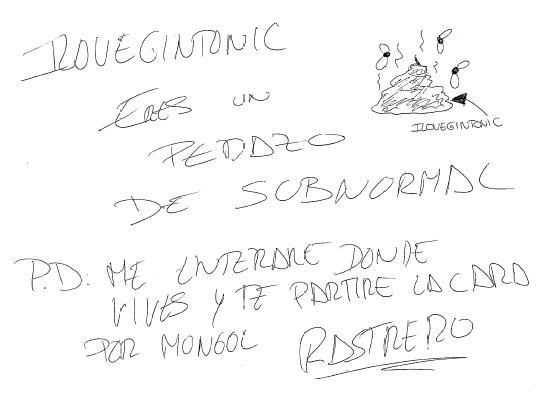 ILOVEGINTONIC
ILOVEGINTONIC
ERES UN
PEDAZO
DE SUBNORMAL
P.D. ME ENTERARE DONDE
VIVES Y TE PARTIRE LA CARA
POR MONGOL RASTRERO